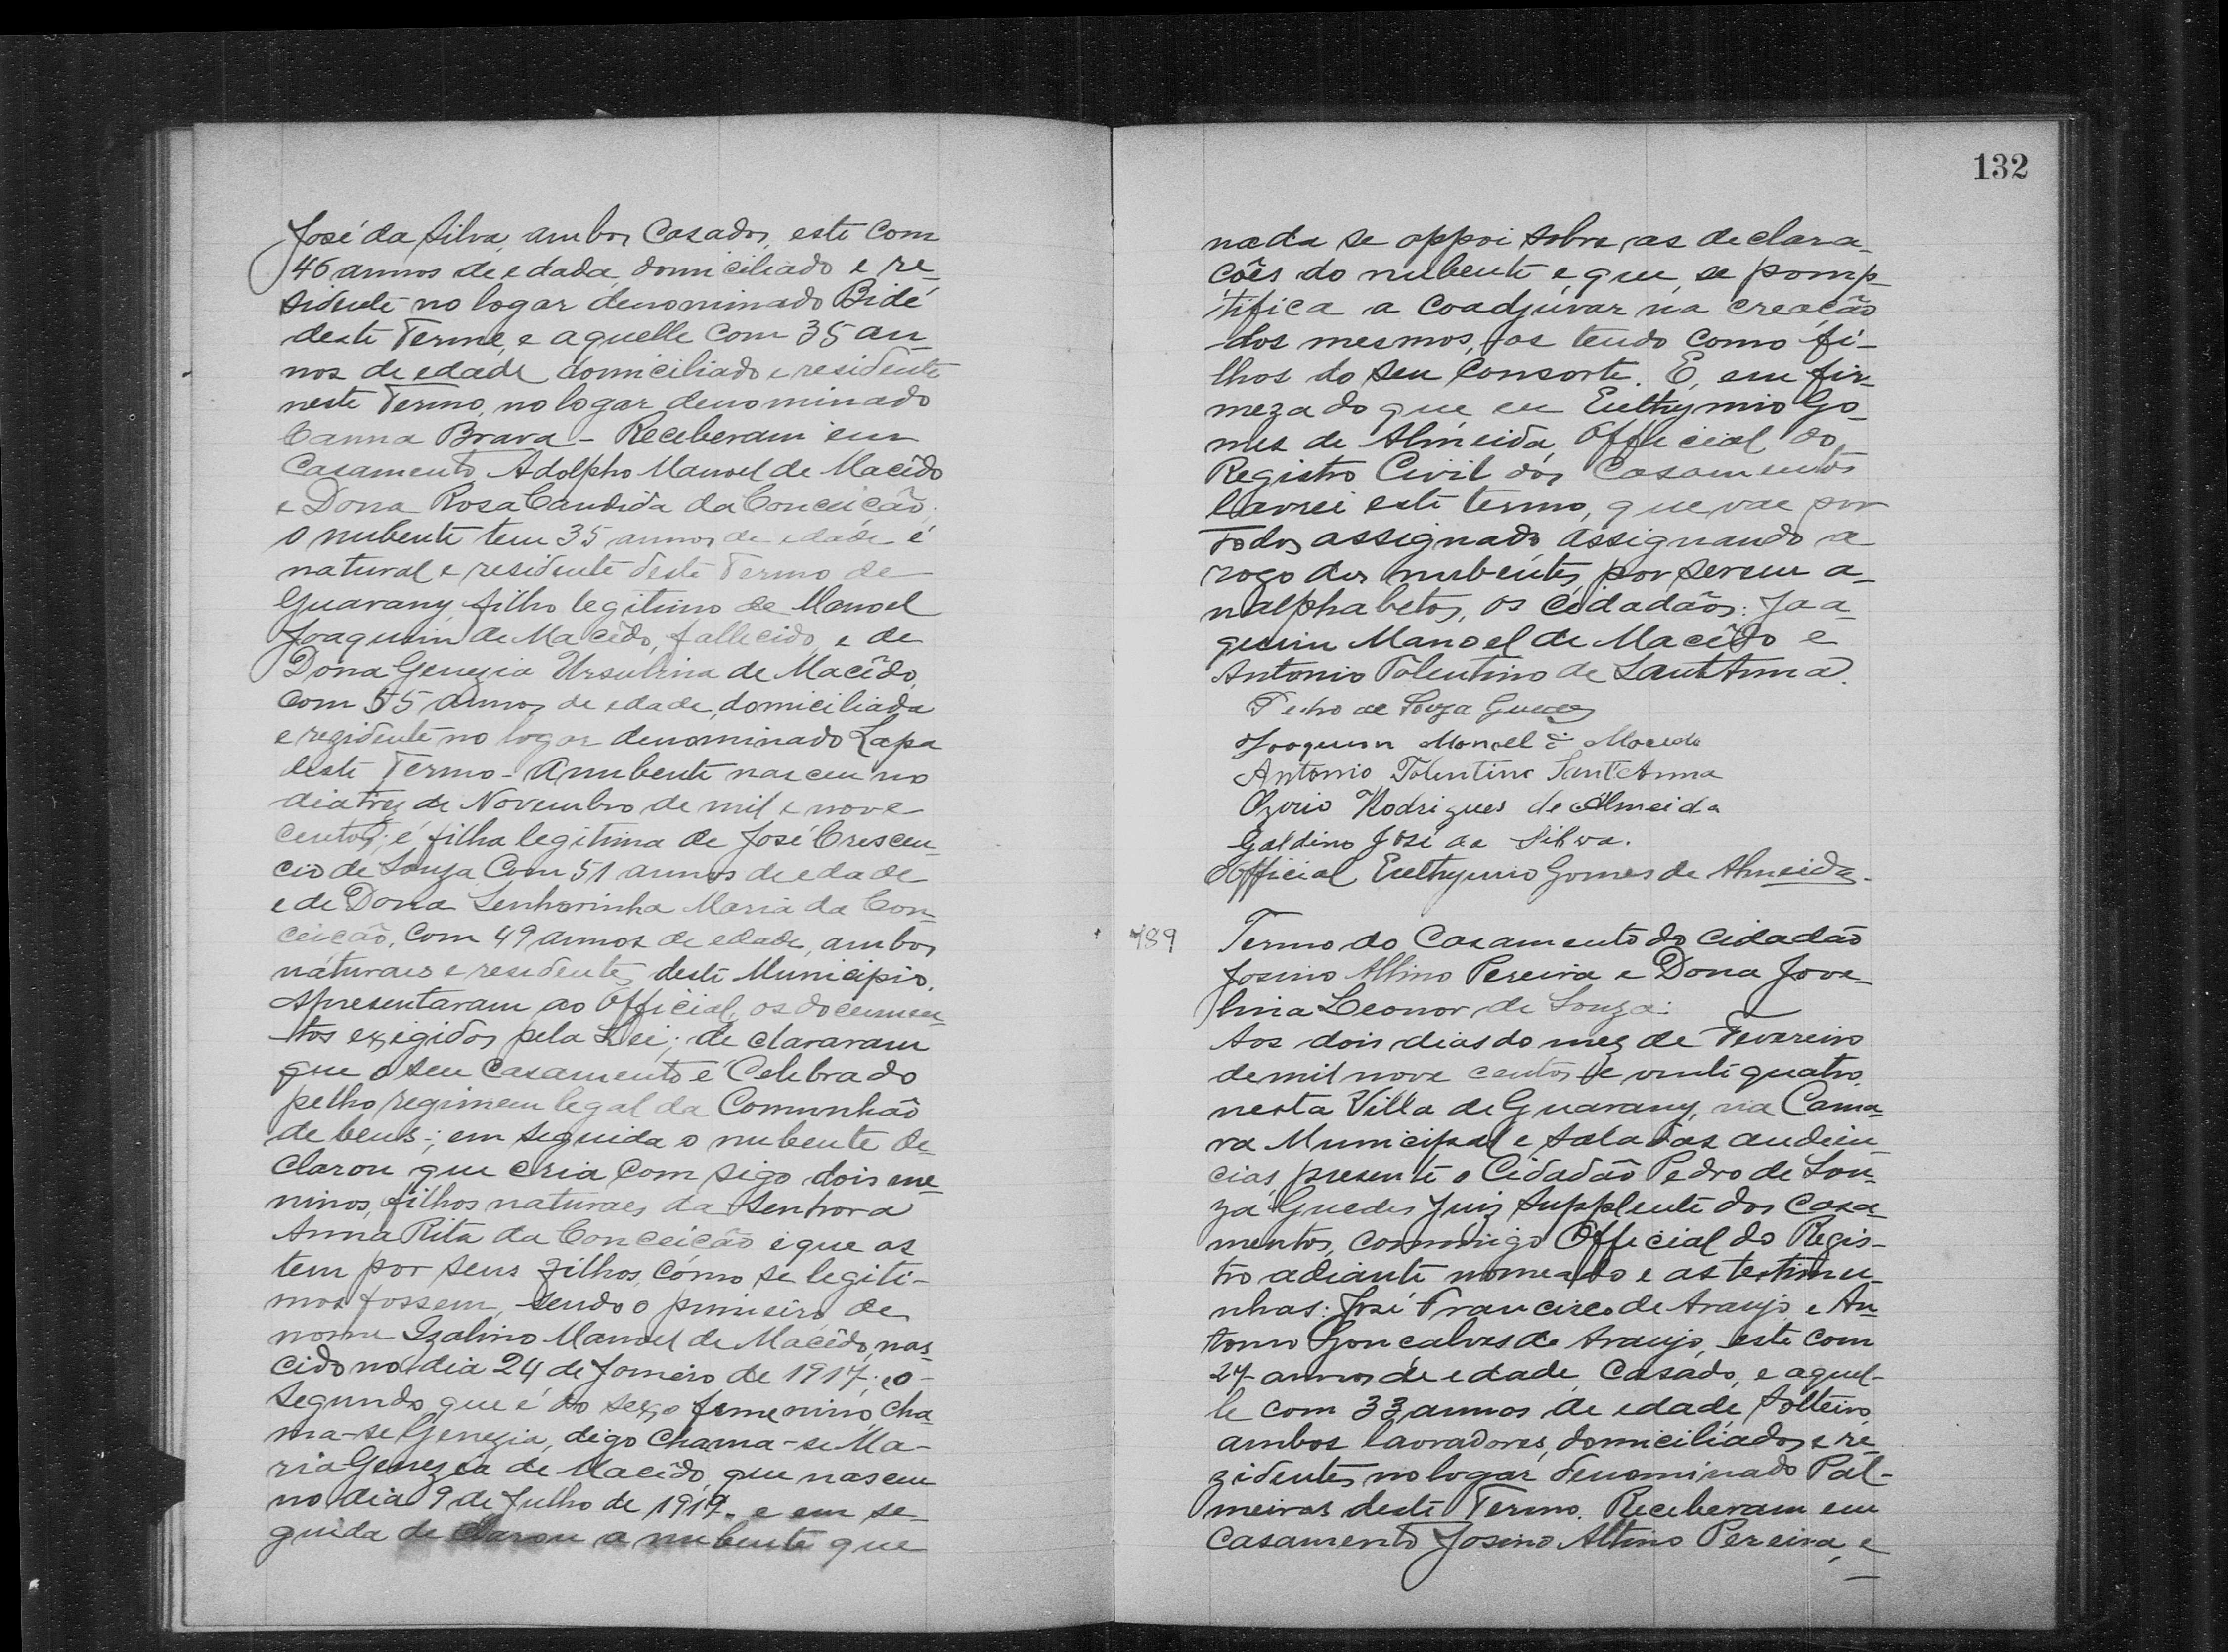 José da Silva, ambos Casados, este com
46 annos de edada, domiciliado e re_
sidente no logar denominado Bidé
deste Terme, e aquelle com 35 an_
nos de edade domiciliado e residente
neste Termo, no logar denominado
Canna Brava - Receberam em
Casamento, Adolpho Manoel de Macêdo
e Dona Rosa Candida da Conceicão.
O nubente tem 35 annos de edade é
natural e residente deste Termo de
Guarany, filho legitimo de Manoel
Joaquim de Macêdo, fallecido, e de
Dona Genezia Ursulina de Macêdo,
com 55 annos de edade, domiciliada
e rezidente no logar denominado Lapa
deste Termo - A nubente nasceu no
dia trez de Novembro de mil e nove
centos; é filha legitima de José Crescen_
cio de Souza Com 51 annos de edade
e de Dona Senhorinha Maria da Con_
ceicão, com 49 annos de edade, ambos
naturaes e residentes deste Municipio.
Apresentaram ao Official, os documen_
tos exigidos pela Lei; declararam
que o seu Casamento é Celebrado
pelho regimem legal da Comunhão
de bens; em seguida o nubente de_
clarou que cria com sigo dois me_
ninos, filhos naturaes da Senhora
Anna Rita da Conceicão e que os
tem por seus filhos, como se legiti-
mos fossem, sendo o primeiro, de
nome Izalino Manoel de Macêdo, nas_
cido no dia 24 de Janeiro de 1917; e o
segundo, que é do sexo femenino, cha_
ma-se Genezia, digo chama-se Ma-
ria Genezea de Macêdo, que nasceu
no dia 9 de Julho de 1919. e em se_
guida declarou a nubente que
132
nada se oppoi sobre as declara_
ções do nubente e que, se pomp_
tifica a coadjuvar na creacão
dos mesmos, os tendo como fi-
lhos do seu Consorte. E, em fir_
meza do que, eu Euthymio Go_
mes de Almeida, Official do
Registro Civil dos Casamentos
lavrei este termo, que vae por
todos assignado, assignando a
rogo dos nubentes, por serem a_
nalphabetos, os cidadãos: Joa_
quim Manoel de Macêdo e
Antonio Tolentino de Sant'Anna.
Pedro de Souza Guedes
Joaquim Manoel de Macedo
Antonio Tolentino Sant'Anna
Ozorio Rodrigues de Almeida
Galdino José da Silva.
Official Euthymio Gomes de Almeida.
489 Termo do Casamento do cidadão
Josino Altino Pereira e Dona Jove_
lina Leonor de Souza:
Aos dois dias do mez de Fevereiro
de mil nove centos e vinte quatro,
nesta Villa de Guarany, na Cama_
ra Municipal e sala das audien_
cias, presente o Cidadão Pedro de Sou_
za Guedes Juiz Supplente dos Casa_
mentos, commigo Official do Regis-
tro adiante nomeado e as testimu_
nhas: José Francisco de Araujo e An_
tonio Gonçalves de Araujo, este com
27 annos de edade, Casado, e aquel-
le com 33 annos de edade, solteiro,
ambos lavradores, domiciliados e re_
zidentes no logar denominado Pal-
meiras deste Termo. Receberam em
Casamento Josino Altino Pereira, e